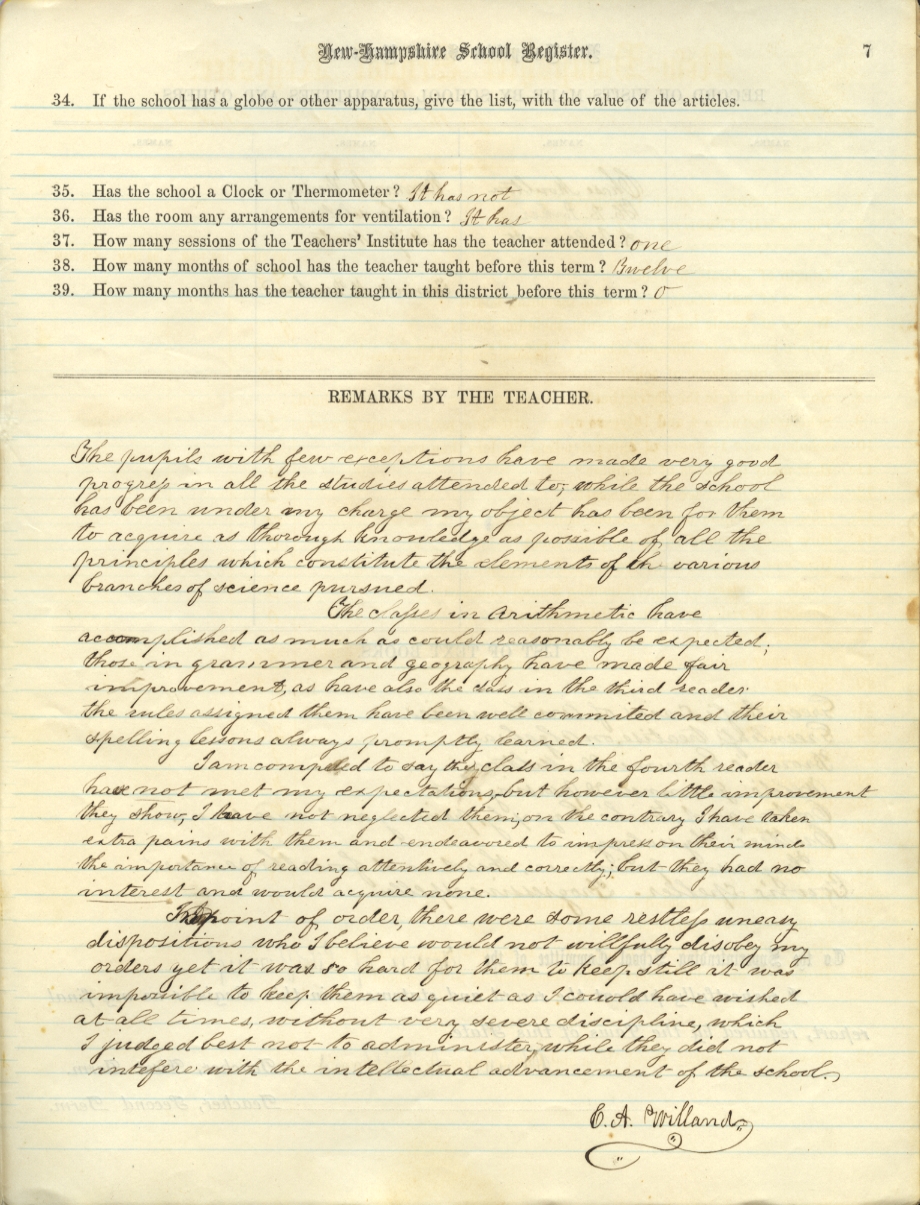 New-Hampshire School Register. 7
34. If the school has a globe or other apparatus, give the list, with the value of the articles.
35. Has the school a Clock or Thermometer? It has not
36. Has the room any arrangements for ventilation? It has
37. How many sessions of the Teachers' Institute has the teacher attended? one
38. How many months of school has the teacher taught before this term? Twelve
39. How many months has the teacher taught in this district before this term? 0
REMARKS BY THE TEACHER.
The pupils with few exceptions have made very good
progress in all the studies attended to; while the school
has been under my charge my object has been for them
to acquire as thorough knowledge as possible of all the
principles which constitute the elements of th various
branches of science pursued.
The classes in Arithmetic have
accomplished as much as could reasonably be expected;
those in grammer and geography have made fair
improvement, as have also the class in the third reader
the rules assigned them have been well commited and their
spelling lessons always promptly learned.
I am compelled to say the class in the fourth reader
have not met my expectations, but however little improvement
they show, I have not neglected them; on the contrary I have taken
extra pains with them and endeavored to impress on their minds
the importance of reading attentively and correctly; but they had no
interest and would acquire none.
In point of order, there were some restless uneasy
dispositions who I believe would not willfully disobey my
orders yet it was so hard for them to keep still it was
impossible to keep them as quiet as I could have wished
at all times, without very severe discipline, which
I judged best not to administer, while they did not
intefere with the intellectual advancement of the school.
E. A. Willand